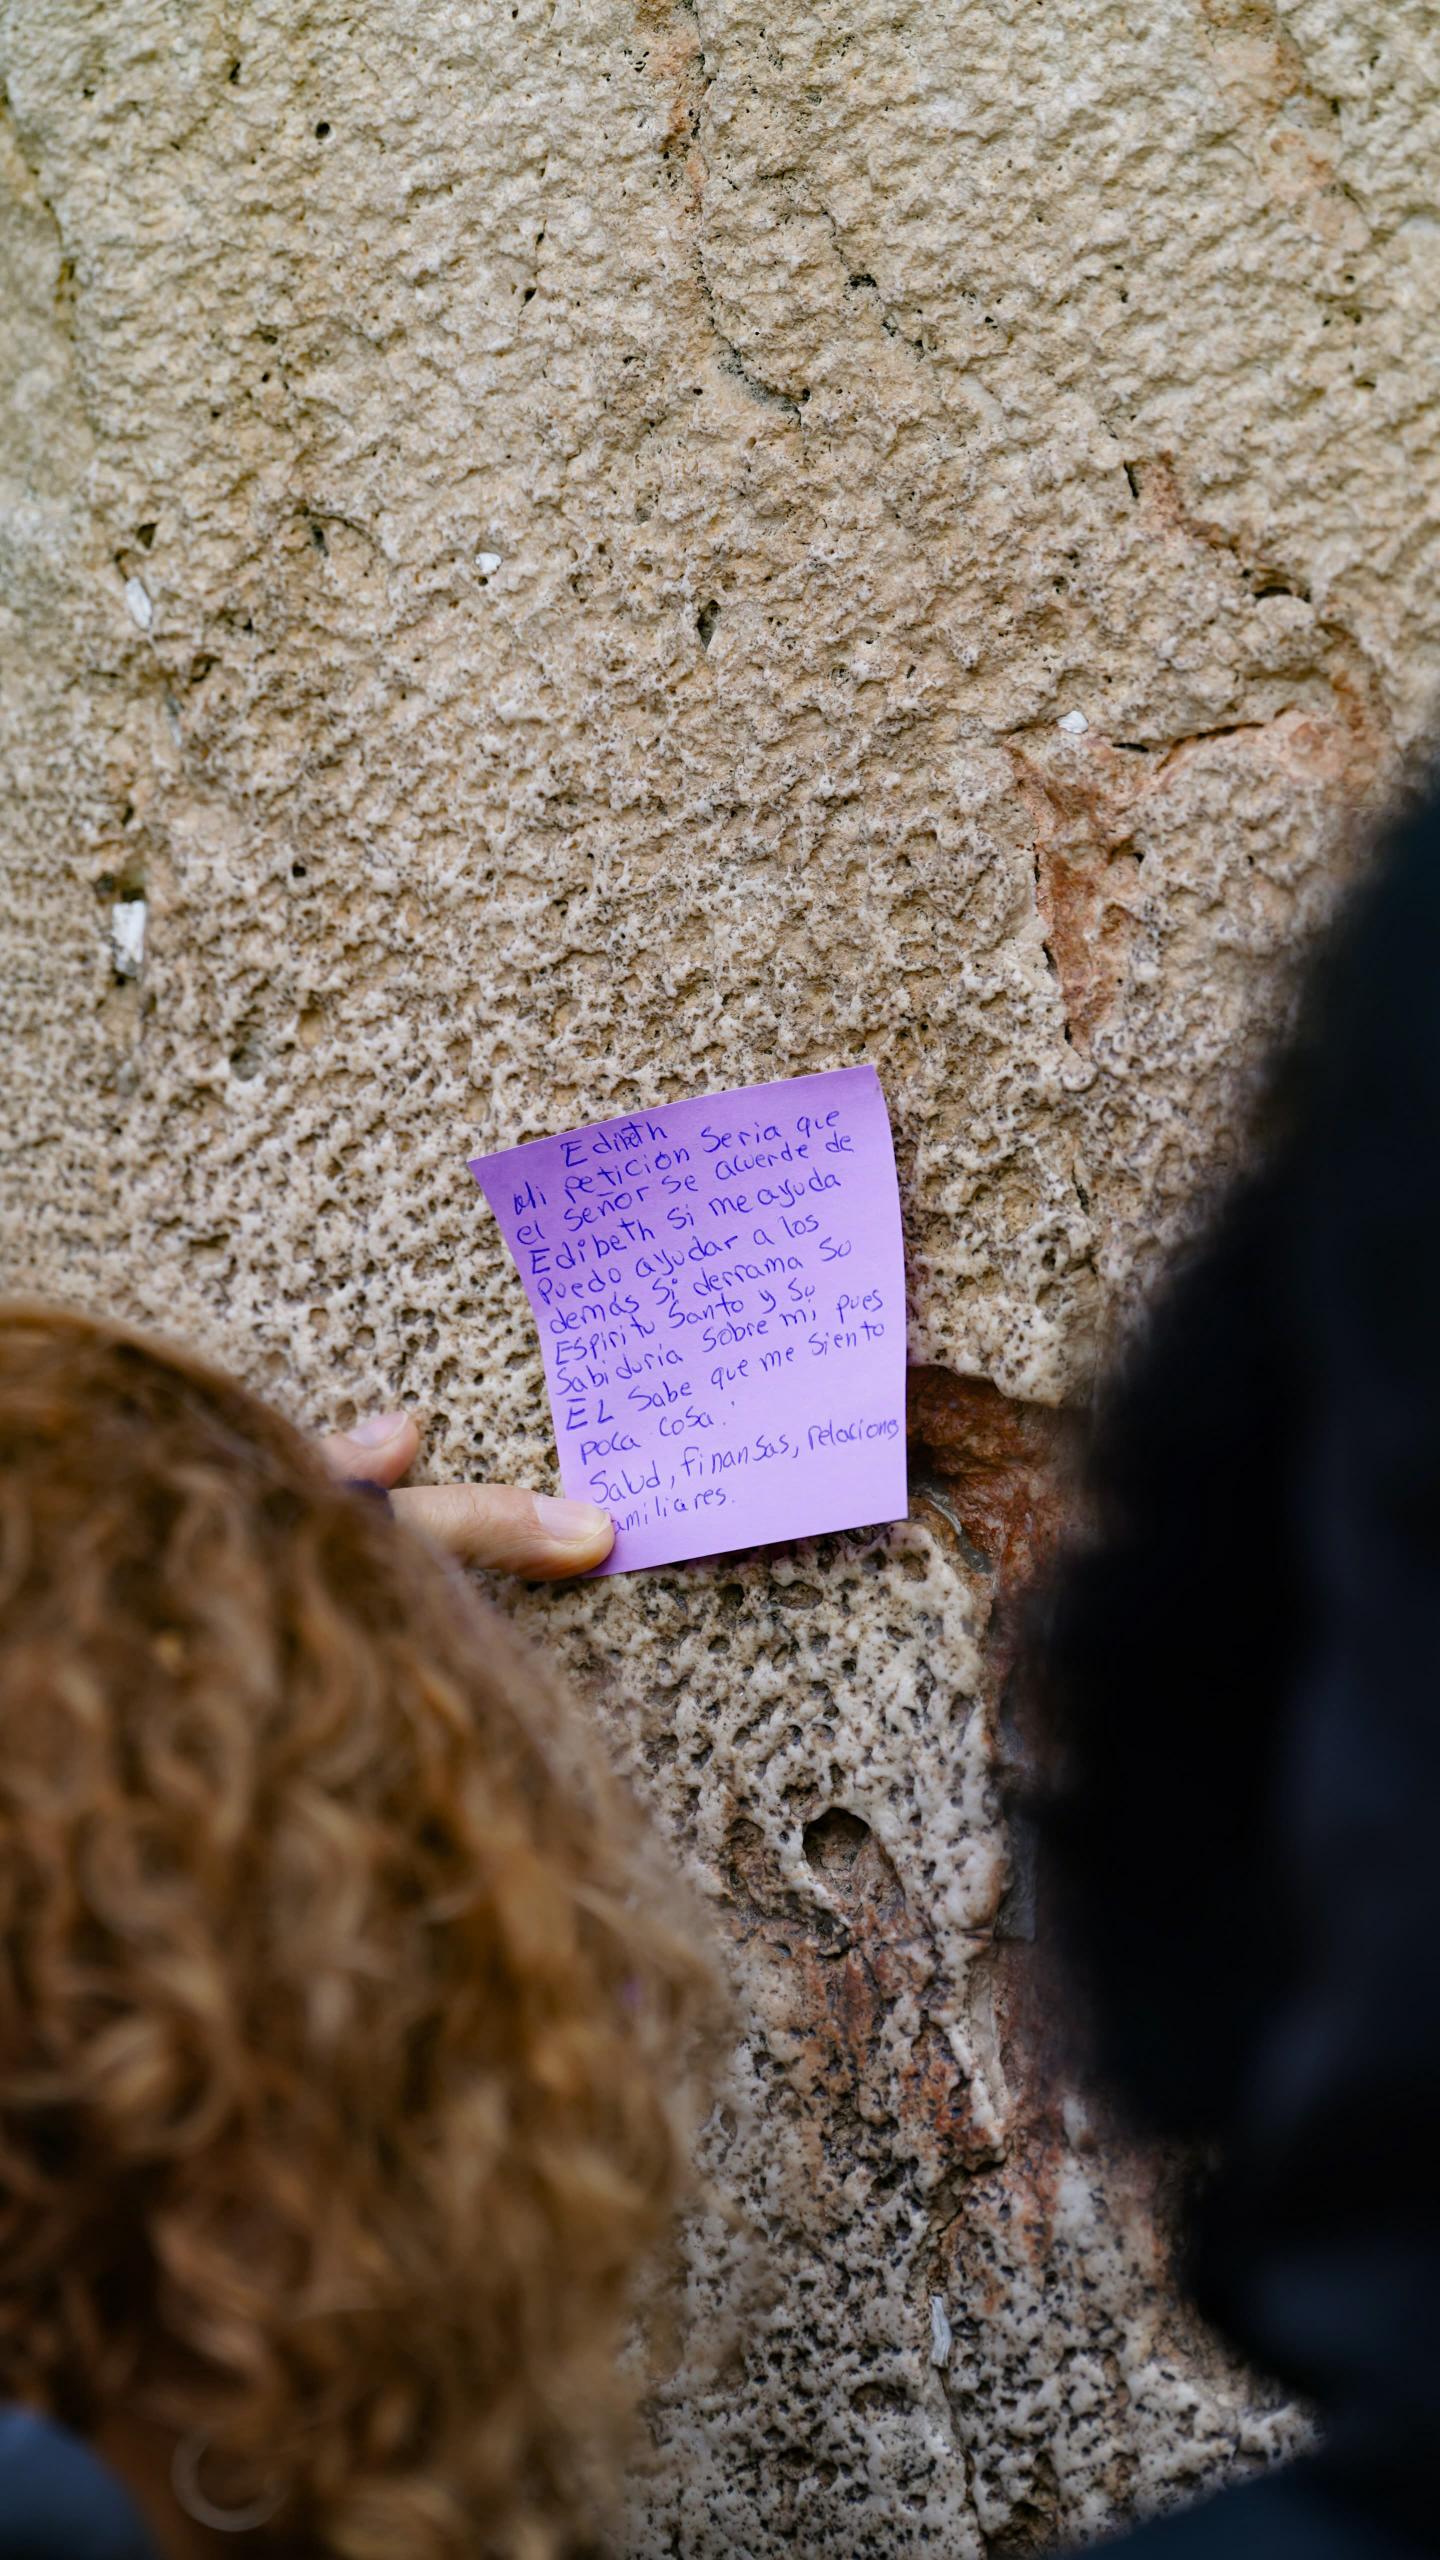 Edibeth
Mi petición seria que
el señor se acuerde de
Edibeth si me ayuda
puedo ayudar a los
demás si derrama su
Espiritu Santo y su
Sabiduria sobre mi, pues
EL sabe que me siento
poca cosa.
Salud, finansas, relaciones
familiares.